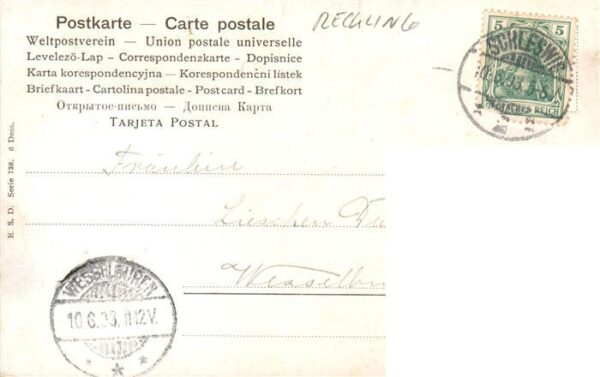 Postkarte — Carte postale
RECHLING
Weltpostverein — Union postale universelle
Levelező-Lap - Correspondenzkarte - Dopisnice
Karta korespondencyjna — Korespondenční lístek
Briefkaart - Cartolina postale - Postcard - Brefkort
Открытое-письмо — Дописна Карта
TARJETA POSTAL
5 5
SCHLESWIG
DEUTSCHES REICH
H. S. D. Serie 738. 6 Dess.
Fräulein
Lieschen
Wesselbu
WESSELBUREN